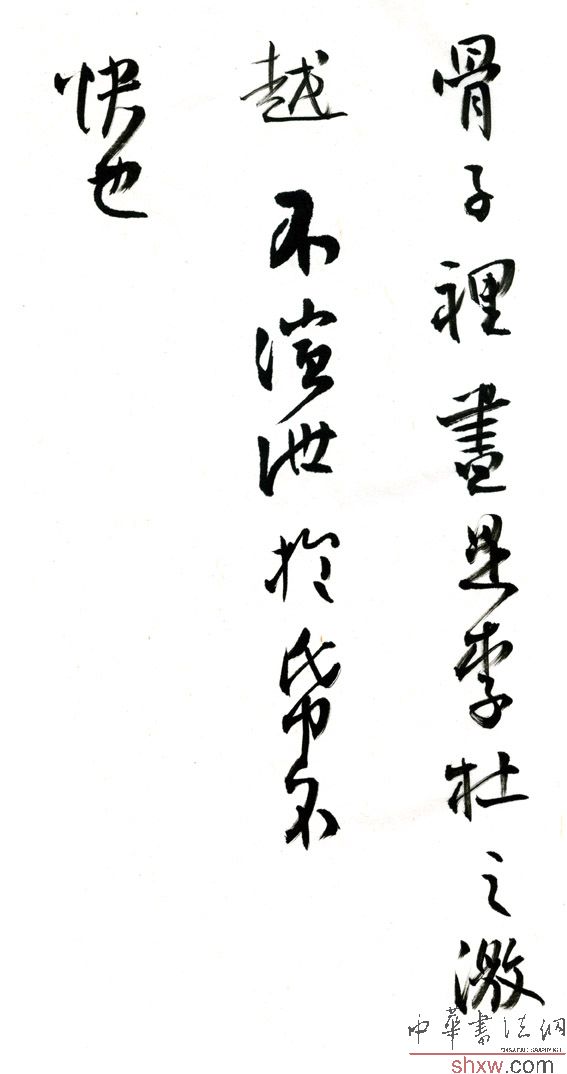 骨子裡盡是李杜之激
越不渲泄於帋不
快也
中華書法網
shxw.com